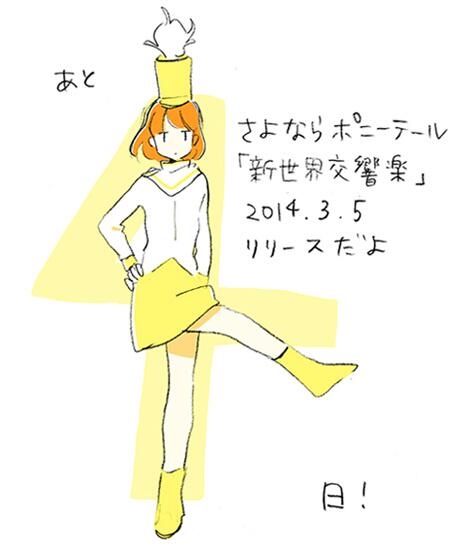 あと
4
さよならポニーテール
「新世界交響楽」
2014.3.5
リリースだよ
日!